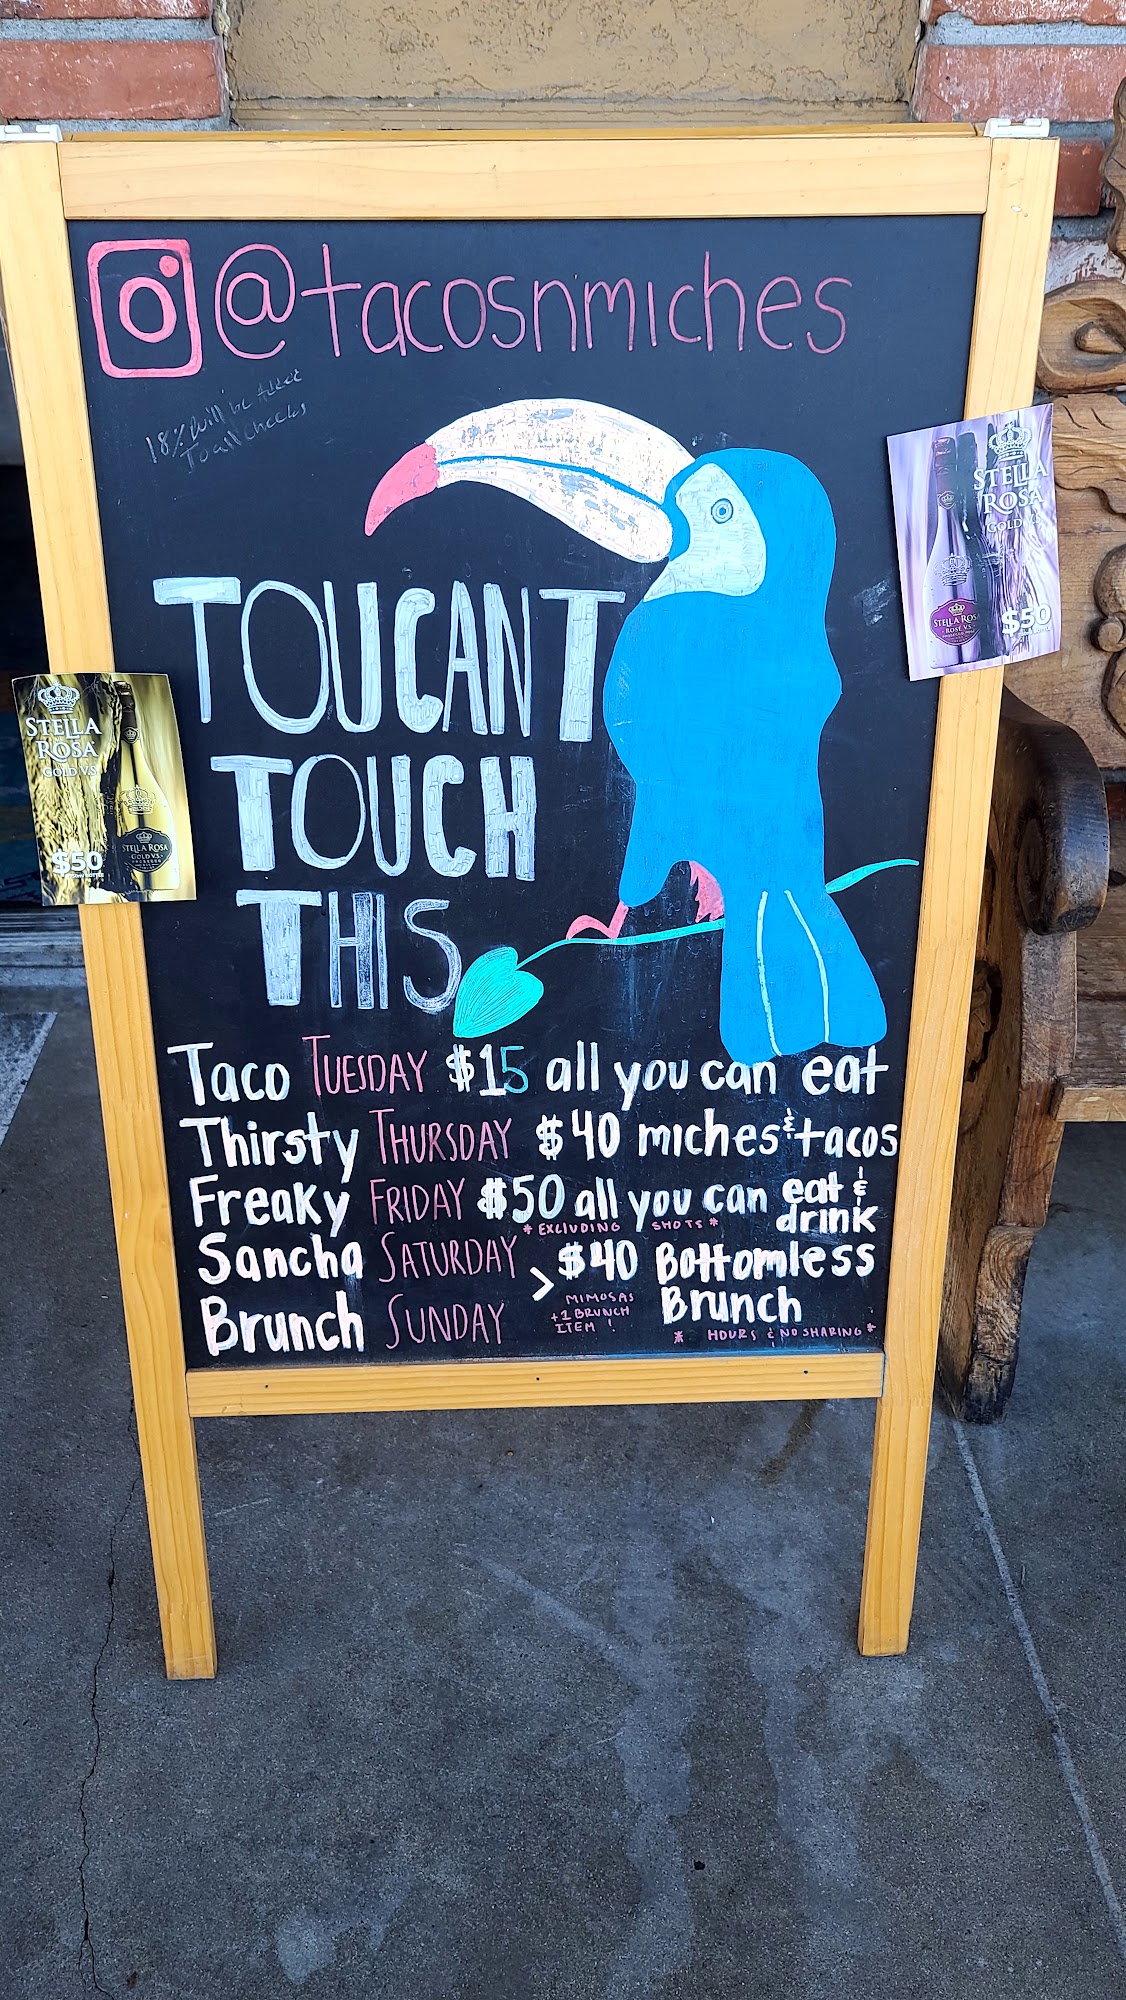 @tacosnmiches
18% will be Added
To all checks
TOUCANT
TOUCH
THIS
STELLA
ROSA
GOLD V.S.
$50
STELLA ROSA
GOLD V.S.
STELLA
ROSA
GOLD V.S.
$50
STELLA ROSA
ROSÉ V.S.
Taco TUESDAY $15 all you can eat
Thirsty THURSDAY $40 miches & tacos
Freaky FRIDAY $50 all you can eat &
drink
*EXCLUDING SHOTS*
Sancha SATURDAY > $40 Bottomless
Brunch SUNDAY Brunch
MIMOSAS
+1 BRUNCH
ITEM!
* HOURS & NO SHARING *